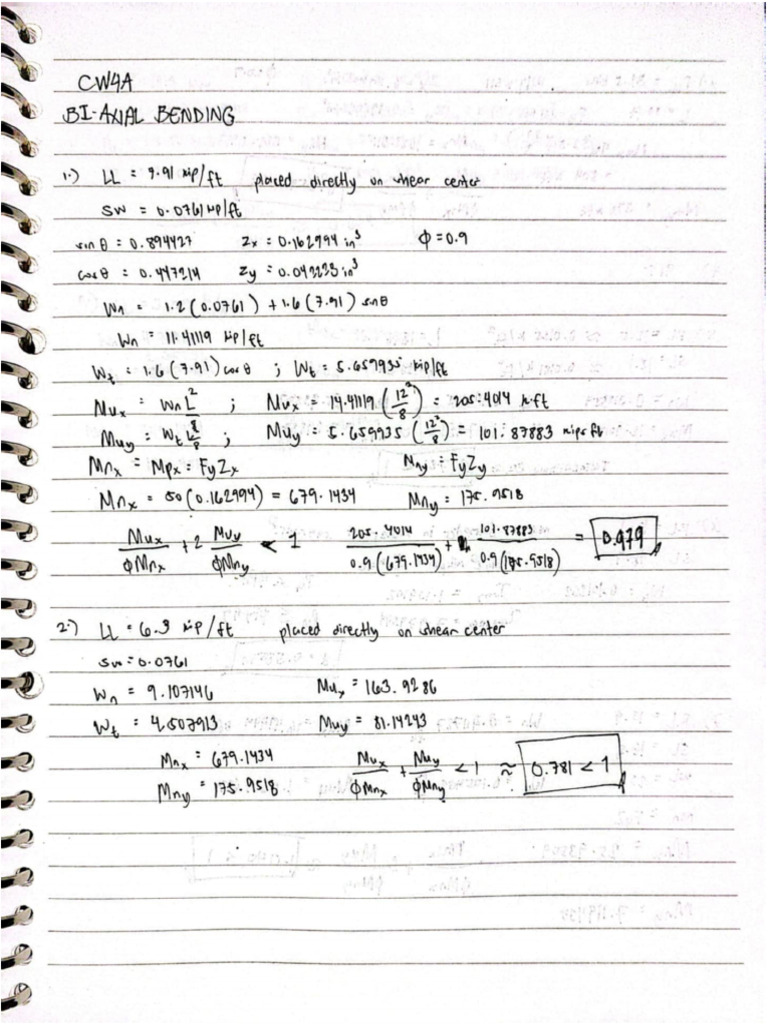 CW4A
BI-AXIAL BENDING
1.) LL = 7.91 kip/ft placed directly on shear center
SW = 0.0761 kip/ft
sin θ = 0.894427 Zx = 0.162994 in³ Φ = 0.9
cos θ = 0.447214 Zy = 0.042223 in³
Wn = 1.2 (0.0761) + 1.6 (7.91) sin θ
Wn = 11.41119 kip/ft
Wt = 1.6 (7.91) cos θ ; Wt = 5.659935 kip/ft
Mux = WnL²/8 ; Mux = 14.41119 (12²/8) = 205.4014 k-ft
Muy = WtL²/8 ; Muy = 5.659935 (12²/8) = 101.87883 kips ft
Mnx = Mpx = FyZx Mny = FyZy
Mnx = 50 (0.162994) = 679.1434 Mny = 175.9518
Mux/ΦMnx + 2 Muy/ΦMny < 1 205.4014/0.9(679.1434) + 101.87883/0.9(175.9518) = 0.979
2.) LL = 6.3 kip/ft placed directly on shear center
SW = 0.0761
Wn = 9.107146 Mux = 163.9286
Wt = 4.507913 Muy = 81.14243
Mnx = 679.1434 Mux/ΦMnx + Muy/ΦMny < 1 ≈ 0.781 < 1
Mny = 175.9518